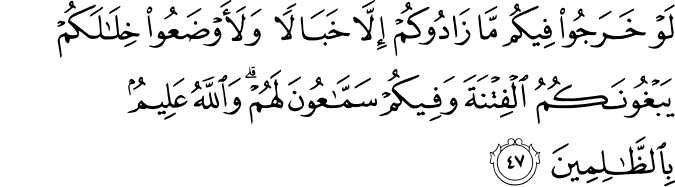 لَوۡ خَرَجُواْ فِيكُم مَّا زَادُوكُمۡ إِلَّا خَبَالٗا وَلَأَوۡضَعُواْ خِلَٰلَكُمۡ
يَبۡغُونَكُمُ ٱلۡفِتۡنَةَ وَفِيكُمۡ سَمَّٰعُونَ لَهُمۡۗ وَٱللَّهُ عَلِيمُۢ
بِٱلظَّٰلِمِينَ ٤٧